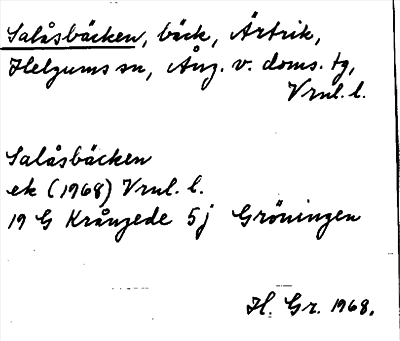 Salåsbäcken, bäck, Ärtrik,
Helgums sn, Ång. v. doms. tg,
Vrnl. l.
Salåsbäcken
ek (1968) Vrnl. l.
19 G Krångede 5j Gröningen
H. Gr. 1968.